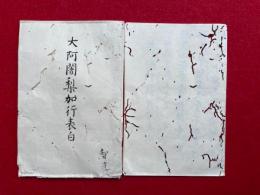 大阿闍梨加行表白